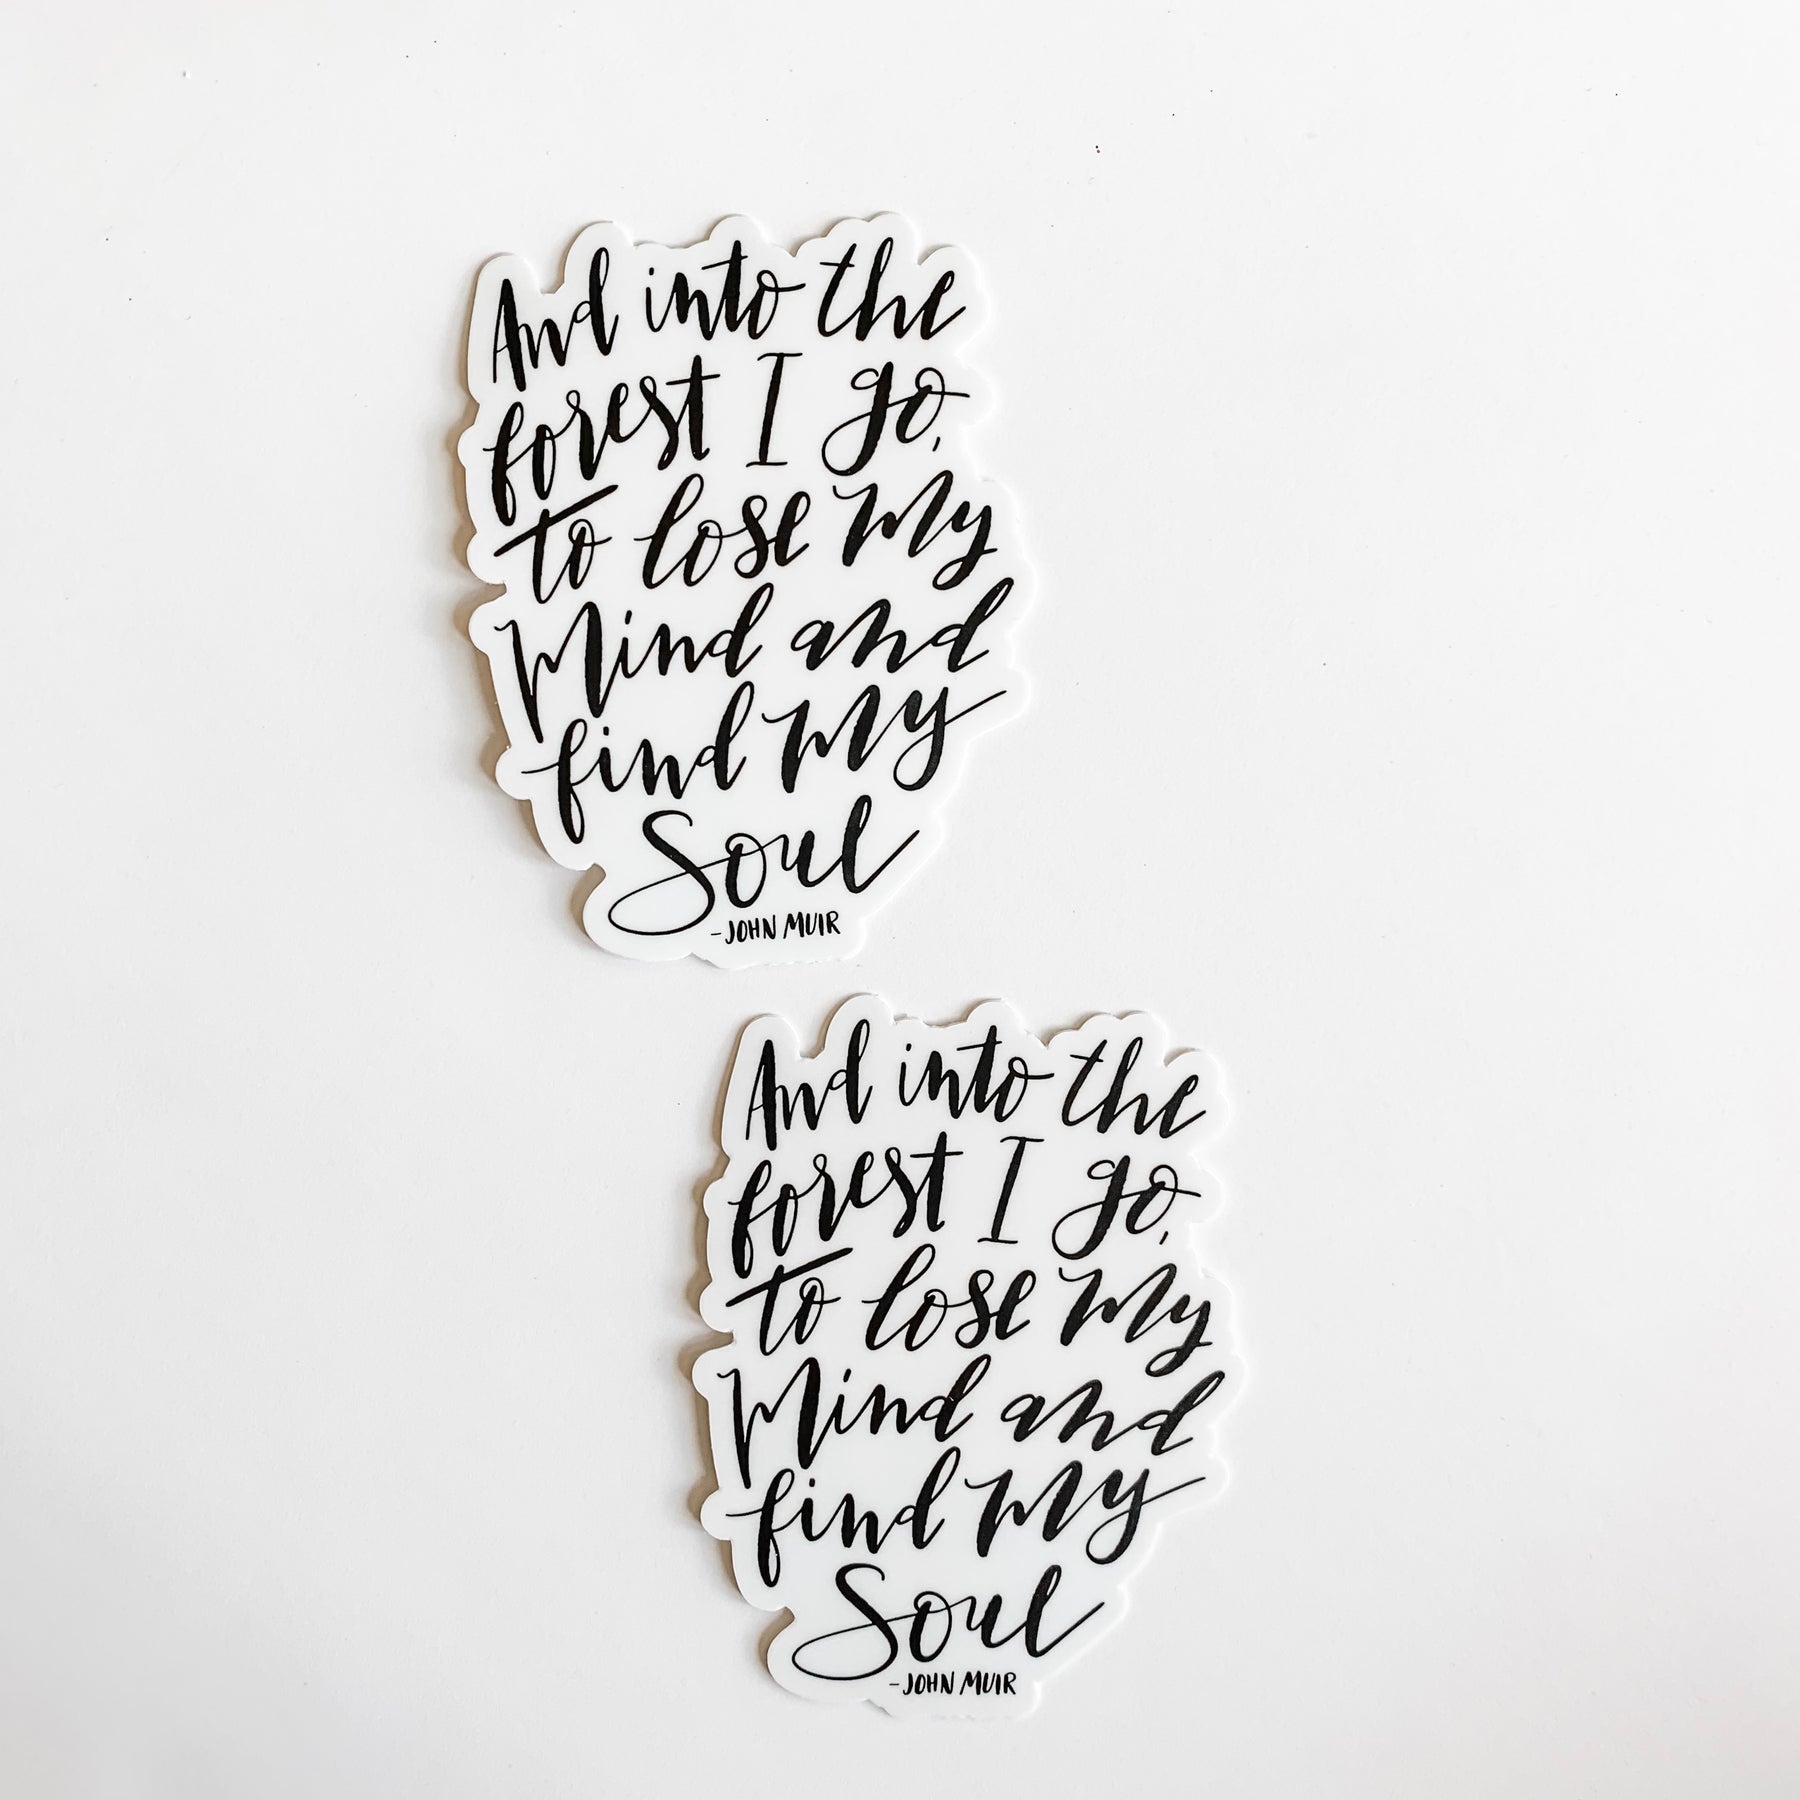 And into the
forest I go,
to lose my
Mind and
find my
Soul
-JOHN MUIR
And into the
forest I go,
to lose my
Mind and
find my
Soul
-JOHN MUIR